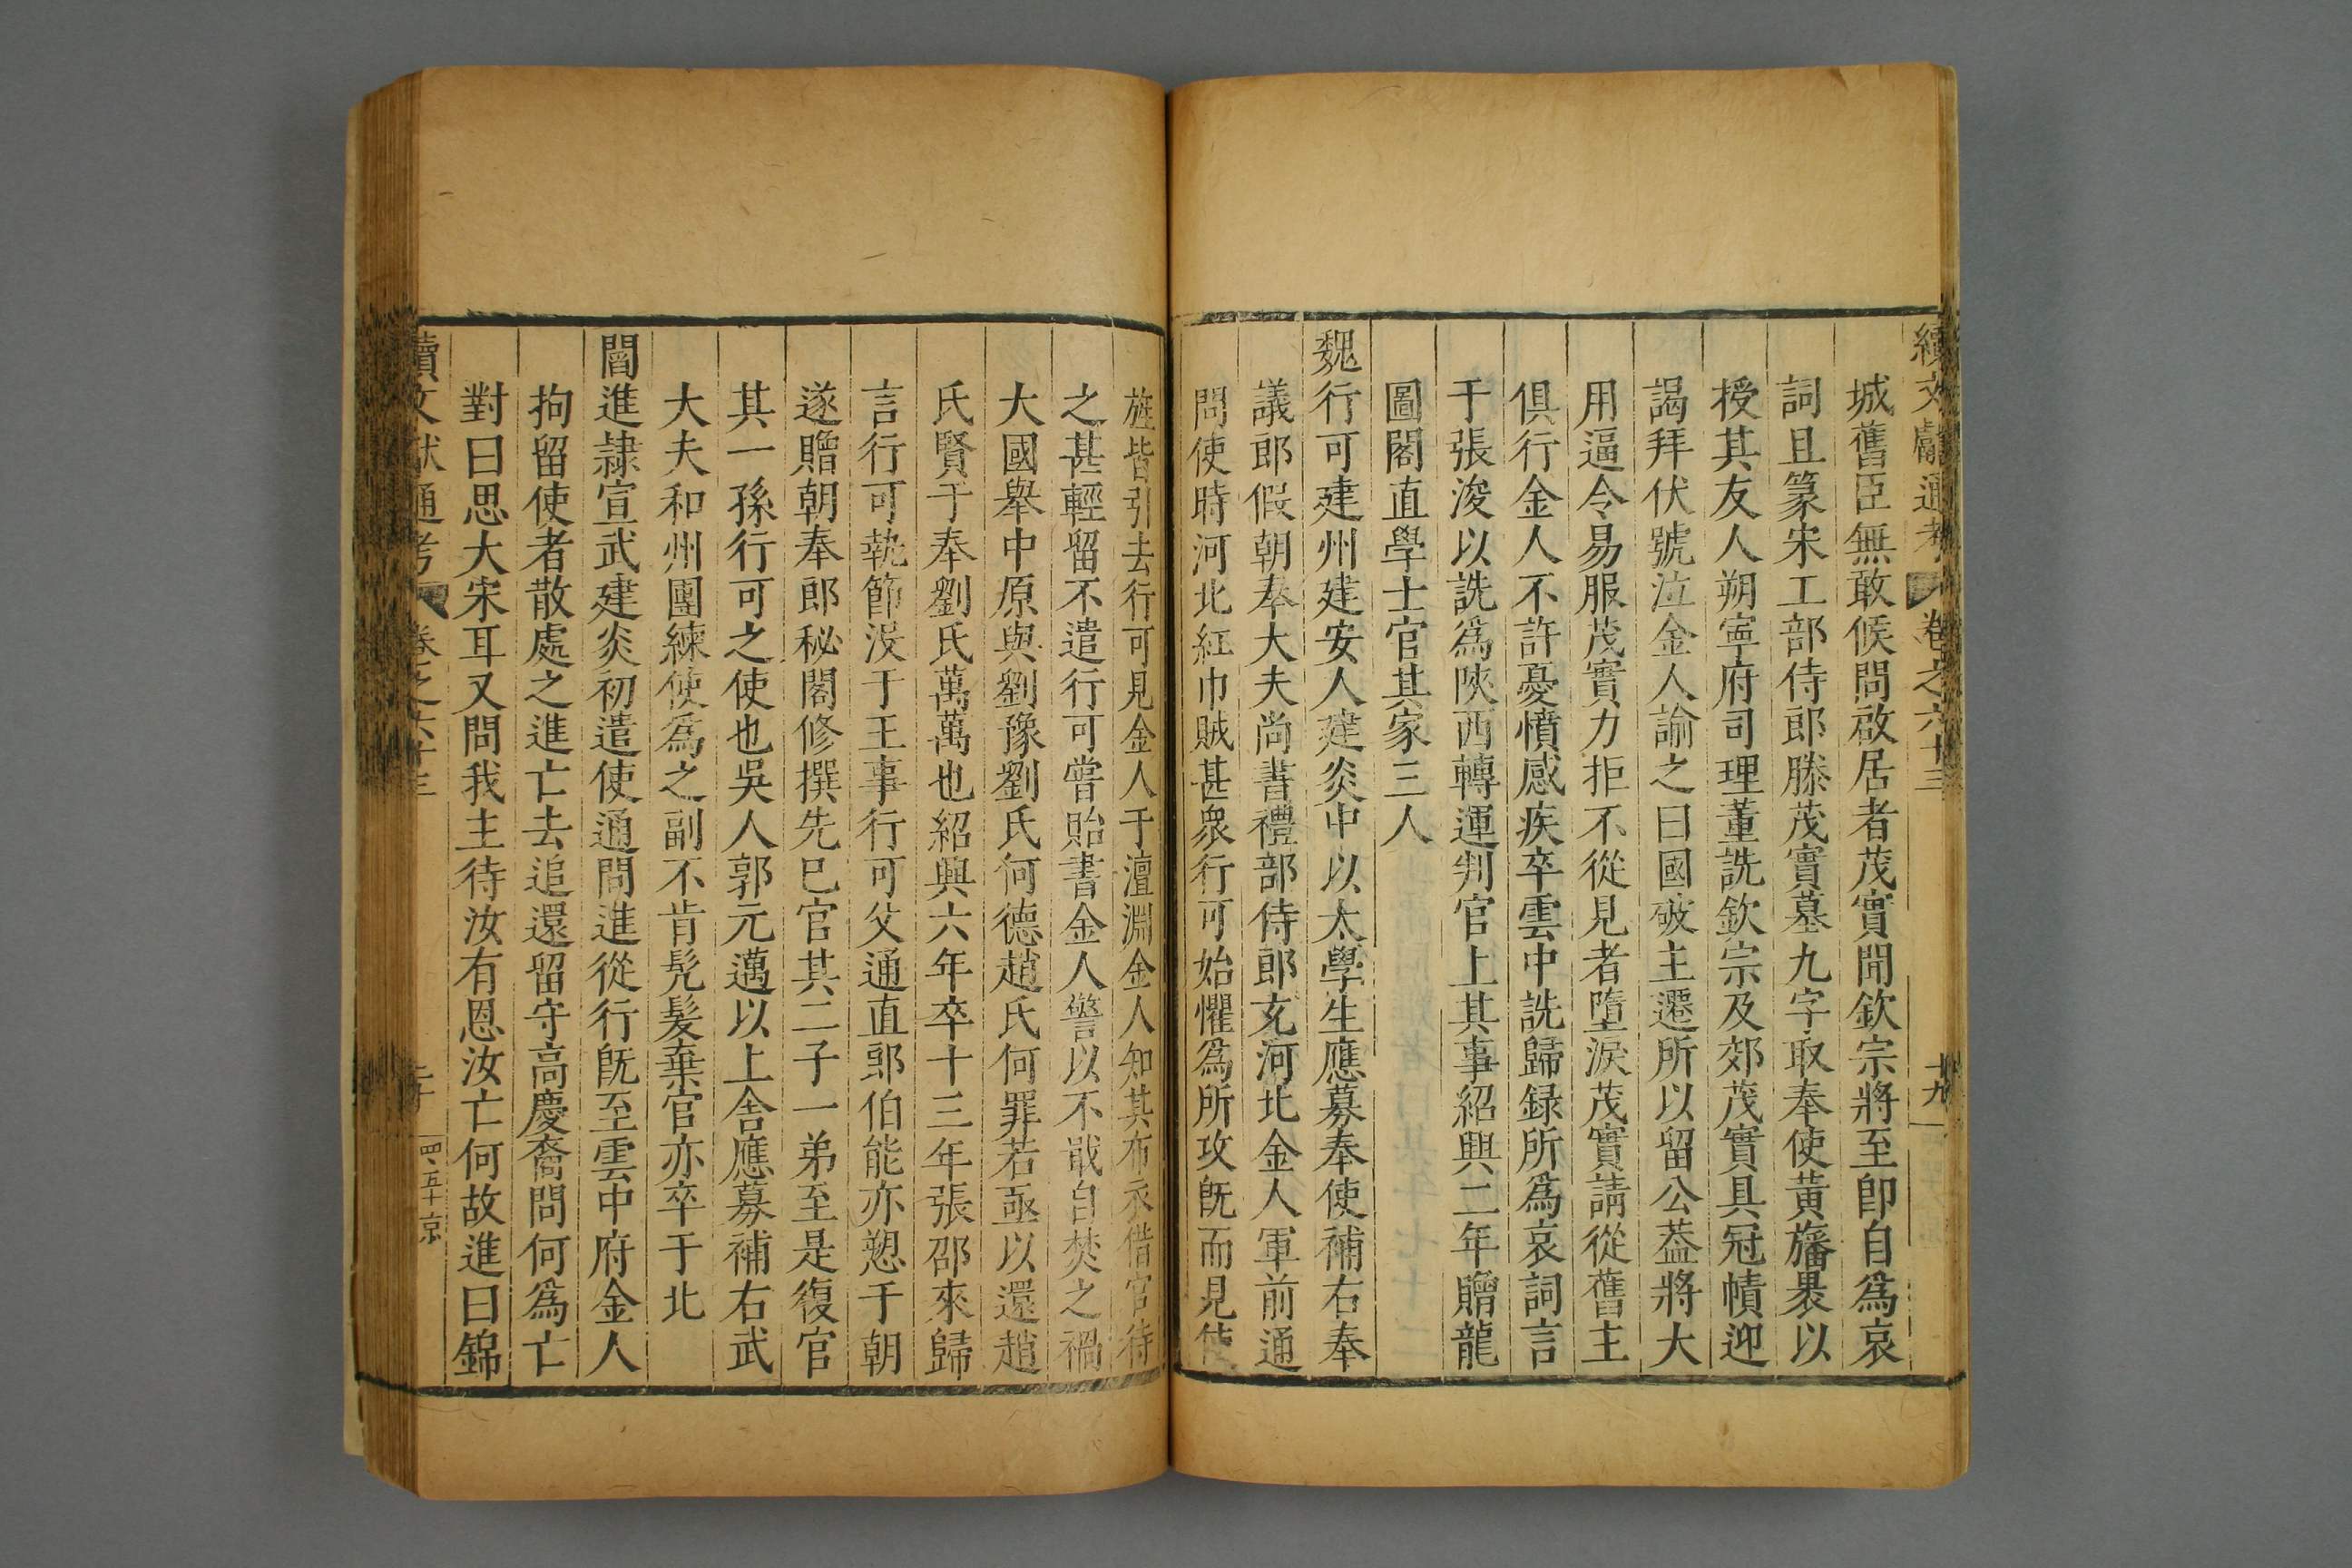 續文獻通考 卷之六十三 十九
城舊臣無敢候問啟居者茂實聞欽宗將至卽自爲哀
詞且篆宋工部侍郎滕茂實墓九字取奉使黃旛裹以
授其友人朔寧府司理董詵欽宗及郊茂實具冠幘迎
謁拜伏號泣金人諭之曰國破主遷所以留公葢將大
用逼令易服茂實力拒不從見者墮淚茂實請從舊主
俱行金人不許憂憤感疾卒雲中詵歸録所爲哀詞言
于張浚以詵爲陝西轉運判官上其事紹興二年贈龍
圖閣直學士官其家三人
魏行可建州建安人建炎中以太學生應募奉使補右奉
議郎假朝奉大夫尚書禮部侍郎充河北金人軍前通
問使時河北紅巾賊甚衆行可始懼爲所攻旣而見使
旌皆引去行可見金人于澶淵金人知其布衣借官待
之甚輕留不遣行可嘗貽書金人警以不戢自焚之禍
大國舉中原與劉豫劉氏何德趙氏何罪若亟以還趙
氏賢于奉劉氏萬萬也紹興六年卒十三年張邵來歸
言行可執節没于王事行可父通直郎伯能亦愬于朝
遂贈朝奉郎秘閣修撰先巳官其二子一弟至是復官
其一孫行可之使也吳人郭元邁以上舍應募補右武
大夫和州團練使爲之副不肯髠髮棄官亦卒于北
閻進隷宣武建炎初遣使通問進從行旣至雲中府金人
拘留使者散處之進亡去追還留守高慶裔問何爲亡
對曰思大宋耳又問我主待汝有恩汝亡何故進曰錦
續文獻通考 卷之六十三 二十 四五十京